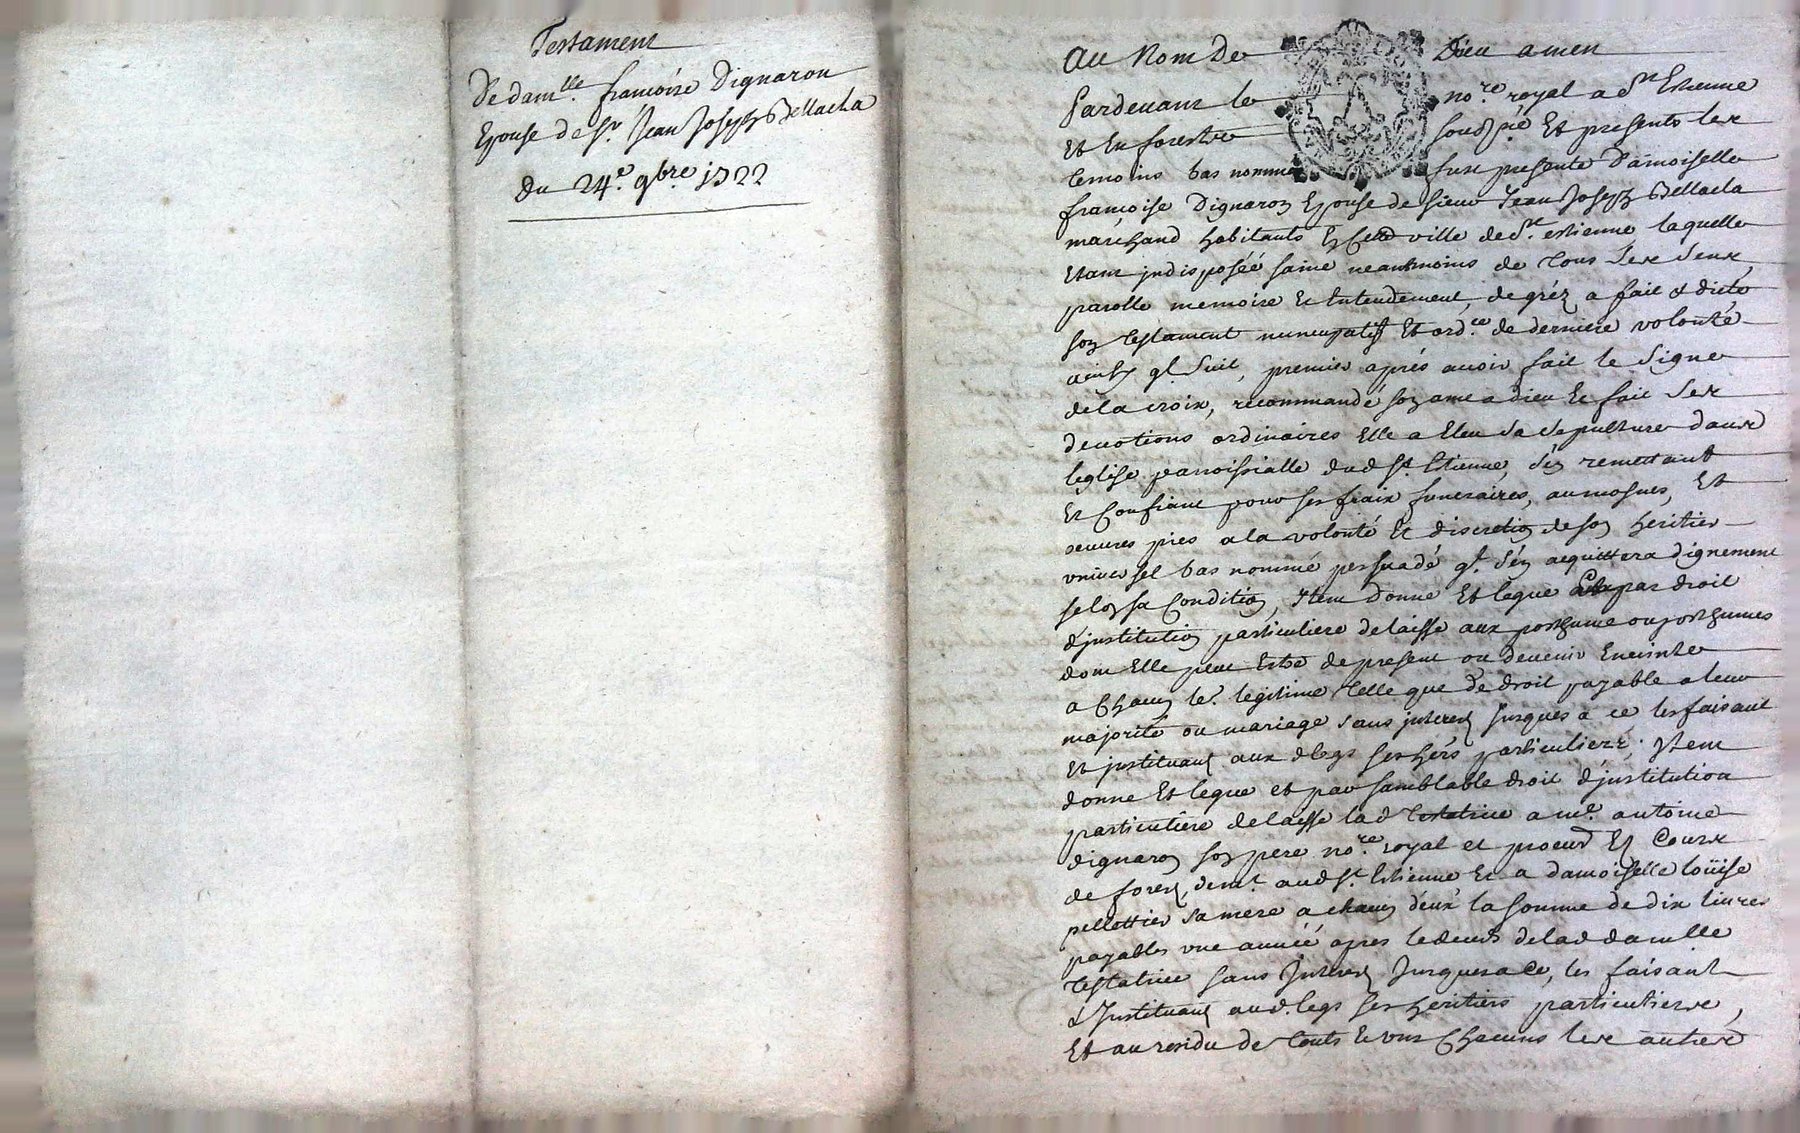 Testament
De dam.lle françoise Dignaron
Epouse de Sr. Jean Joseph Bellacla
du 24.e 9bre 1722
Au Nom De Dieu amen
Pardevant le no.re royal a St Estienne
Et En forestz soubz.né Et presents les
temoins bas nommés fust presente Damoiselle
françoise Dignaron Epouse de sieur Jean Joseph Bellacla
marchand habitants En Cette ville de St. estienne laquelle
Etant indisposéé saine neantmoins de tous Ses Sens,
parolle memoire Et Entendement, de gréz a fait & dicté
son testament nuncupatif Et ord.ce de derniere volonté
ainsy q. Suit, premier aprés avoir fait le Signe
de la croix, recommandé son ame a dieu Et fait Ses
devotions ordinaires Elle a Eleu Sa Sepulture dans
leglise parroissialle dud St. Estienne, s'en remettant
Et Confiant pour ses fraix funeraires, aumosnes, Et
oeuvres pies a la volonté Et discretion de son heritier
universel bas nommé persuadé q. s'en acquittera dignement
selon sa Condition, Item donne Et legue par droit
d'institution particuliere delaisse aux posthume ou posthumes
dont Elle peut Estre de present ou devenir Enceinte
a Chacun le. legitime telle que de droit payable a leur
majorité ou mariage sans interest jusques a ce les faisant
Et instituant aux d legs ses hers particuliers; Item
donne Et legue et par samblable droit d'institution
particuliere delaisse lad testatrice a me. antoine
dignaron son pere no.re royal et procur En Cours
de forest, dem.t aud St. Estienne Et a damoiselle loüise
pellettier sa mere a chacun d'eux la somme de dix livres
payables une annéé apres le deces de lad damlle
testatrice sans Interest Jusques a Ce, les faisant
& Instituant aud. legs ses heritiers particuliers,
Et au residu de touts Et uns Chacuns ses autres